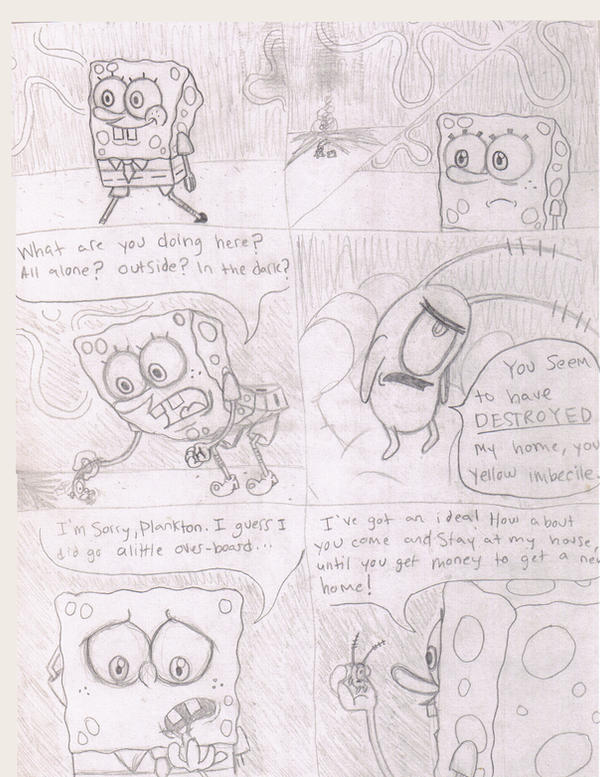 What are you doing here?
All alone? outside? In the dark?
You Seem
to have
DESTROYED
my home, you
yellow imbecile.
I'm Sorry, Plankton. I guess I
did go alittle over-board...
I've got an idea! How about
you come and Stay at my house,
until you get money to get a new
home!